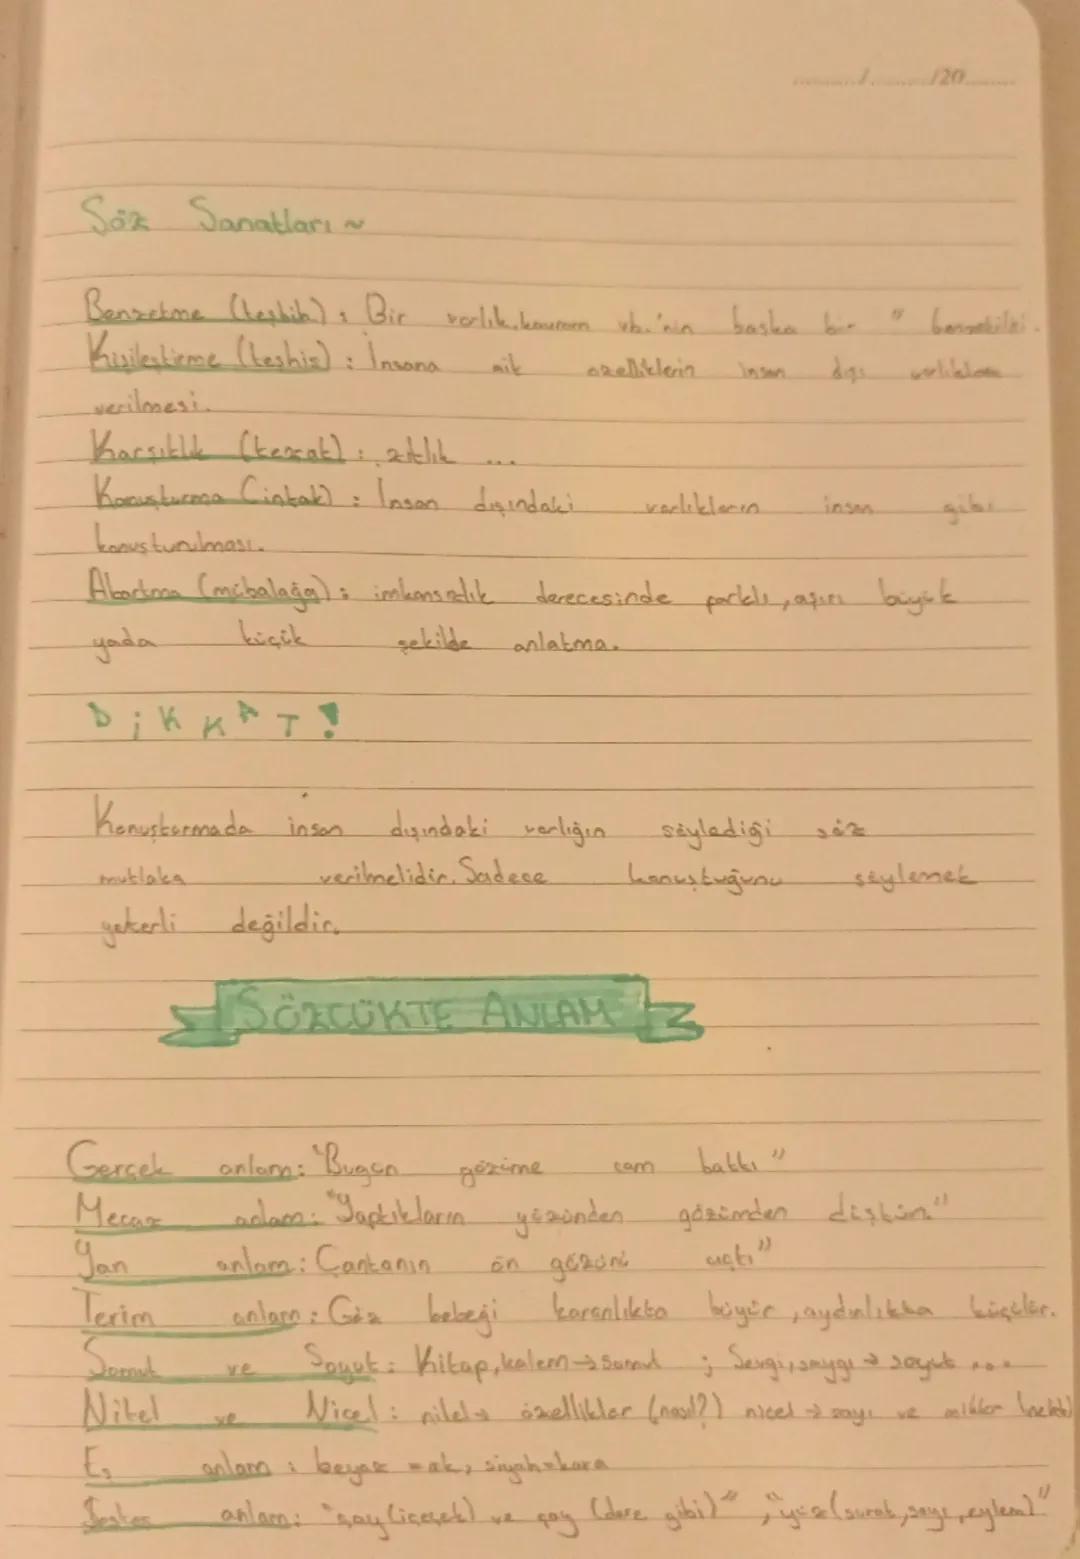 / /20
Söz Sanatları ~
Benzetme (teşbih) : Bir varlık, kavram vb.'nin başka bir "
Kişileştirme (teşhis) : İnsana ait özelliklerin insan dışı varlıklara
verilmesi.
Karşıtlık (tezat) : zıtlık ...
Konuşturma (intak) : İnsan dışındaki varlıkların insan gibi
konuşturulması.
Abartma (mübalağa) : imkansızlık derecesinde parklı, aşırı büyük
yada küçük şekilde anlatma.
DİKKAT!
Konuşturmada insan dışındaki varlığın söylediği söz
mutlaka verilmelidir. Sadece konuştuğunu söylemek
yeterli değildir.
SÖZCÜKTE ANLAM
Gerçek anlam: "Bugün gözüme cam battı"
Mecaz anlam: "Yaptıkların yüzünden gözümden düştün."
Yan anlam: Çantanın ön gözünü açtı"
Terim anlam: Göz bebeği karanlıkta büyür, aydınlıkta küçülür.
Somut ve Soyut: Kitap, kalem → somut ; Sevgi, saygı → soyut ...
Nitel ve Nicel: nitel → özellikler (nasıl?) nicel → sayı ve miktar
Eş anlam: beyaz = ak, siyah = kara
Sesteş anlam: "çay (içecek) ve çay (dere gibi)", "yüz (surat, sayı, eylem)"